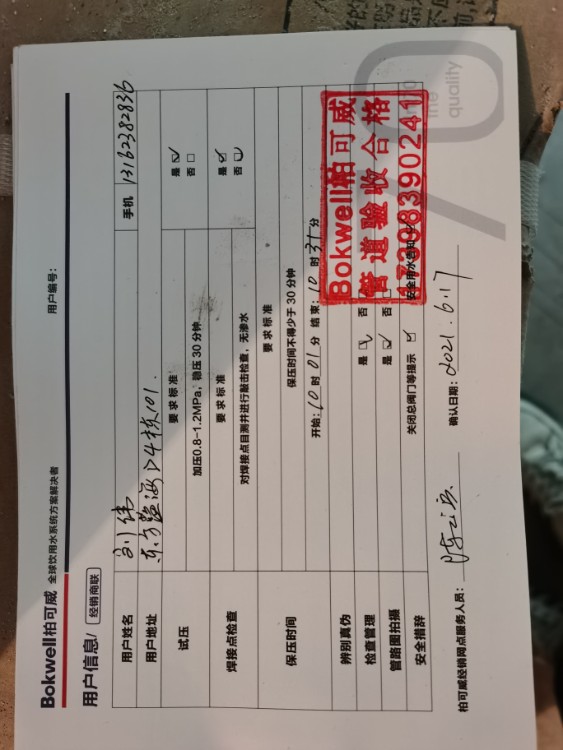 Bokwell柏可威 全球饮用水系统方案解决者
用户编号：
用户信息/ 经销商联
用户姓名 刘伟 手机 13162382836
用户地址 东方蓝海D4栋101.
试压 要求标准 是 ☑
加压0.8-1.2MPa，稳压 30 分钟 否 □
焊接点检查 要求标准 是 ☑
对焊接点目测并进行敲击检查，无渗水 否
保压时间 要求标准
保压时间不得少于 30 分钟
开始：10 时 01 分 结束：10 时 31 分
辨别真伪
检查管理 是 ☑ 否
管路图拍摄 是 ☑ 否
安全措辞 关闭总阀门等提示 ☑ 安全用水告知
柏可威经销网点服务人员： 确认日期：2021.6.17
Bokwell柏可威
管道验收合格
17398390241
the
quality